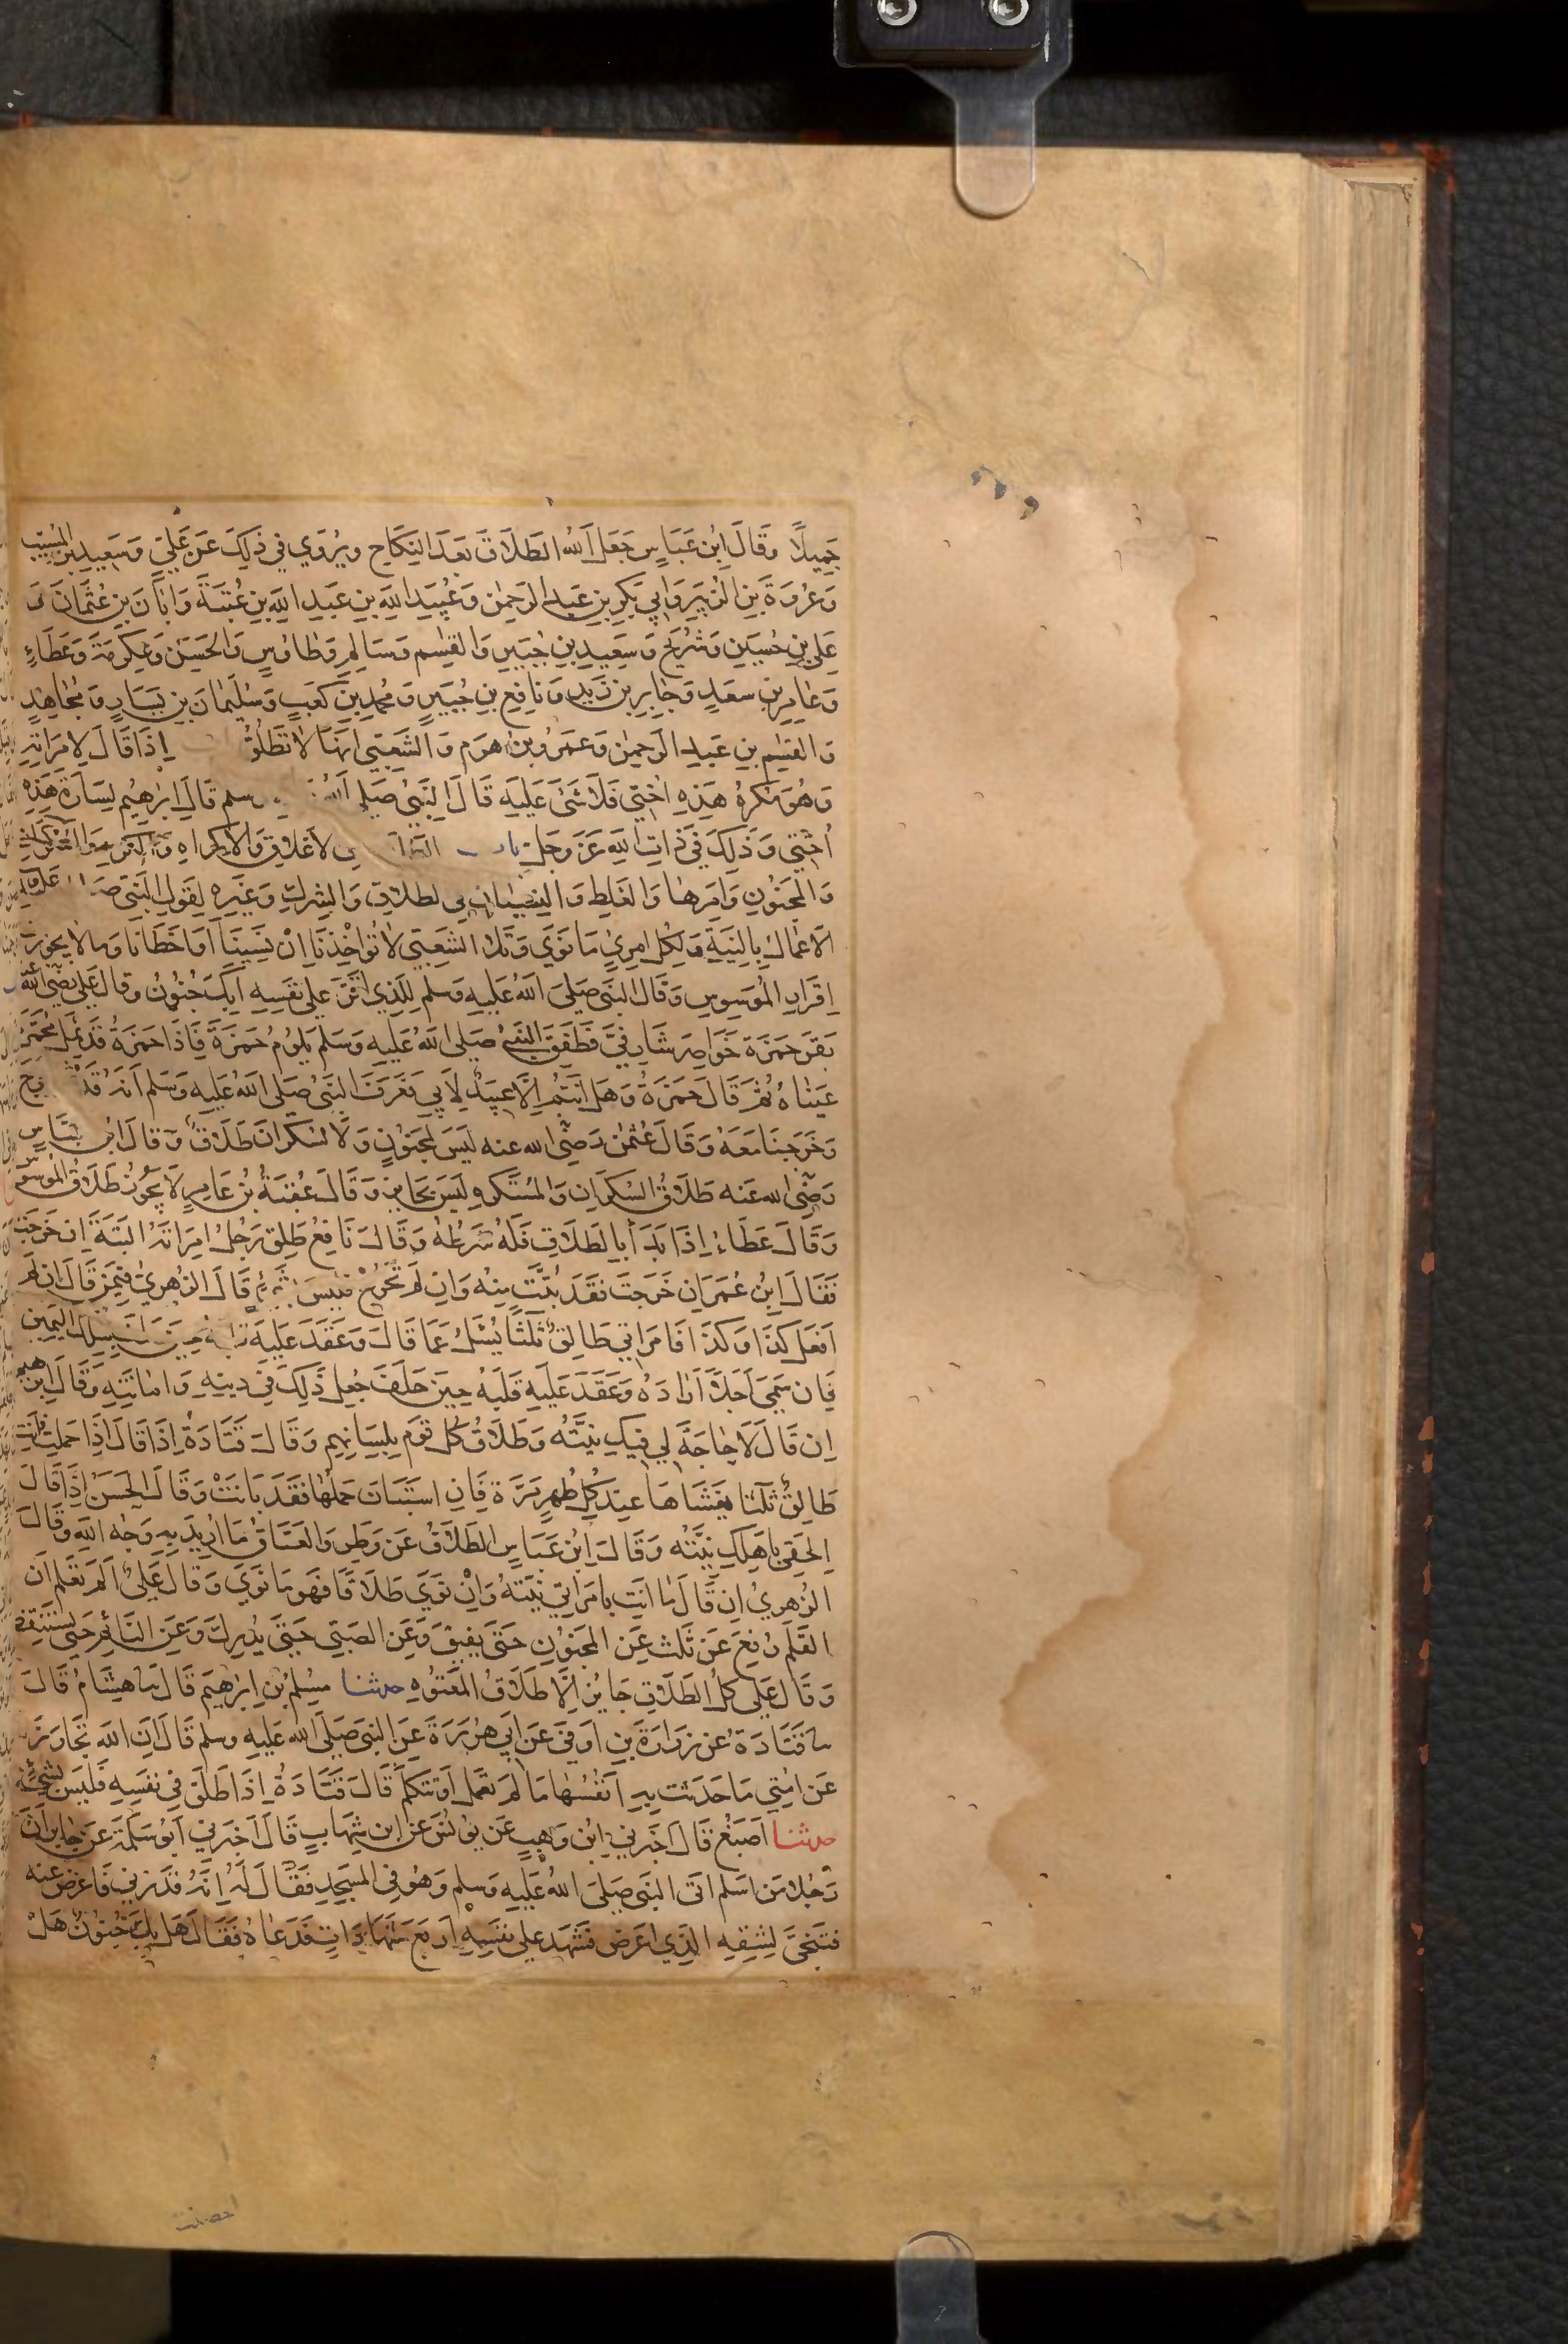 جَمِيلًا وَقَالَ ابْنُ عَبَّاسٍ جَعَلَ اللهُ الطَّلَاقَ بَعْدَ النِّكَاحِ وَيُرْوَي فِي ذَلِكَ عَنْ عَلِيٍّ وَسَعِيدِ بْنِ الْمُسَيَّبِ
وَعُرْوَةَ بْنِ الزُّبَيْرِ وَابِي بَكْرِ بْنِ عَبْدِ الرَّحْمٰنِ وَعُبَيْدِ اللهِ بْنِ عَبْدِ اللهِ بْنِ عُتْبَةَ وَابَانَ بْنِ عُثْمَانَ وَ
عَلِيِّ بْنِ حُسَيْنٍ وَشُرَيْحٍ وَسَعِيدِ بْنِ جُبَيْرٍ وَالْقٰسِمِ وَسَالِمٍ وَطَاوُسٍ وَالْحَسَنِ وَعِكْرِمَةَ وَعَطَاءٍ
وَعَامِرِ بْنِ سَعْدٍ وَجَابِرِ بْنِ زَيْدٍ وَنَافِعِ بْنِ جُبَيْرٍ وَمُحَمَّدِ بْنِ كَعْبٍ وَسُلَيْمَانَ بْنِ يَسَارٍ وَمُجَاهِدٍ
وَالْقٰسِمِ بْنِ عَبْدِ الرَّحْمٰنِ وَعَمْرِو بْنِ هَرِمٍ وَالشَّعْبِيِّ انَّهَا لَا تَطْلُقُ اِذَا قَالَ لِامْرَاَتِهِ
وَهُوَ مُكْرَهٌ هَذِهِ اخْتِي فَلَا شَيْءَ عَلَيْهِ قَالَ النَّبِيُّ صَلَّى اللهُ وسلم قَالَ اِبْرٰهِيمُ لِسَارَةَ هَذِهِ
اُخْتِي وَذَلِكَ فِي ذَاتِ اللهِ عَزَّ وَجَلَّ باب الاغْلَاقِ وَالْاِكْرَاهِ
وَالْمَجْنُونِ وَامْرِهِمَا وَالْغَلَطِ وَالنِّسْيَانِ فِي الطَّلَاقِ وَالشِّرْكِ وَغَيْرِهِ لِقَوْلِ النَّبِيِّ
الْاَعْمَالُ بِالنِّيَّةِ وَلِكُلِّ امْرِئٍ مَا نَوَي وَتَلَا الشَّعْبِيُّ لَا تُؤَاخِذْنَا اِنْ نَسِينَا اَوْ اَخْطَانَا وَمَا لَا يَجُوزُ مِنْ
اِقْرَارِ الْمُوَسْوِسِ وَقَالَ النَّبِيُّ صَلَّى اللهُ عَلَيْهِ وَسَلَّمَ لِلَّذِي اقَرَّ عَلَى نَفْسِهِ ابِكَ جُنُونٌ وَقَالَ عَلِيٌّ رَضِيَ اللهُ عنه
بَقَرَ حَمْزَةُ خَوَاصِرَ شَارِفَيَّ فَطَفِقَ النَّبِيُّ صَلَّى اللهُ عَلَيْهِ وَسَلَّمَ يَلُومُ حَمْزَةَ فَاِذَا حَمْزَةُ قَدْ ثَمِلَ مُحْمَرَّةٌ
عَيْنَاهُ ثُمَّ قَالَ حَمْزَةُ وَهَلْ اَنْتُمْ اِلَّا عَبِيدٌ لِاَبِي فَعَرَفَ النَّبِيُّ صَلَّى اللهُ عَلَيْهِ وَسَلَّمَ اَنَّهُ قَدْ
وَخَرَجْنَا مَعَهُ وَقَالَ عُثْمٰنُ رَضِيَ الله عنه لَيْسَ لِمَجْنُونٍ وَلَا لِسَكْرَانَ طَلَاقٌ وَقَالَ ابْنُ عَبَّاسٍ
رَضِيَ الله عَنه طَلَاقُ السَّكْرَانِ وَالْمُسْتَكْرَهِ لَيْسَ بِجَائِزٍ وَقَالَ عُقْبَةُ بْنُ عَامِرٍ لَا يَجُوزُ طَلَاقُ الْمُوَسْوِسِ
وَقَالَ عَطَاءٌ اِذَا بَدَا بِالطَّلَاقِ فَلَهُ شَرْطُهُ وَقَالَ نَافِعٌ طَلَّقَ رَجُلٌ امْرَاَتَهُ الْبَتَّةَ اِنْ خَرَجَتْ
فَقَالَ ابْنُ عُمَرَ اِنْ خَرَجَتْ فَقَدْ بُتَّتْ مِنْهُ وَاِنْ لَمْ تَخْرُجْ فَلَيْسَ بِشَيْءٍ قَالَ الزُّهْرِيُّ فِيمَنْ قَالَ اِنْ لَمْ
اَفْعَلْ كَذَا وَكَذَا فَامْرَاَتِي طَالِقٌ ثَلٰثًا يُسْئَلُ عَمَّا قَالَ وَعَقَدَ عَلَيْهِ قَلْبُهُ حِينَ حَلَفَ بِتِلْكَ الْيَمِينِ
فَاِنْ سَمَّي اَجَلًا اَرَادَهُ وَعَقَدَ عَلَيْهِ قَلْبُهُ حِينَ حَلَفَ جُعِلَ ذَلِكَ فِي دِينِهِ وَامَانَتِهِ وَقَالَ اِبْرٰهِيمُ
اِنْ قَالَ لَا حَاجَةَ لِي فِيكِ نِيَّتُهُ وَطَلَاقُ كُلِّ قَوْمٍ بِلِسَانِهِمْ وَقَالَ قَتَادَةُ اِذَا قَالَ اِذَا حَمَلْتِ فَاَنْتِ
طَالِقٌ ثَلٰثًا يَغْشَاهَا عِنْدَ كُلِّ طُهْرٍ مَرَّةً فَاِنِ اسْتَبَانَ حَمْلُهَا فَقَدْ بَانَتْ وَقَالَ الْحَسَنُ اِذَا قَالَ
الْحَقِي بِاَهْلِكِ نِيَّتُهُ وَقَالَ ابْنُ عَبَّاسٍ الطَّلَاقُ عَنْ وَطَرٍ وَالْعَتَاقُ مَا اُرِيدَ بِهِ وَجْهُ اللهِ وَقَالَ
الزُّهْرِيُّ اِنْ قَالَ مَا اَنْتِ بِامْرَاَتِي نِيَّتُهُ وَاِنْ نَوَي طَلَاقًا فَهُوَ مَا نَوَي وَقَالَ عَلِيٌّ اَلَمْ تَعْلَمْ اَنَّ
الْقَلَمَ رُفِعَ عَنْ ثَلٰثٍ عَنِ الْمَجْنُونِ حَتَّى يُفِيقَ وَعَنِ الصَّبِيِّ حَتَّى يُدْرِكَ وَعَنِ النَّائِمِ حَتَّى يَسْتَيْقِظَ
وَقَالَ عَلِيٌّ كُلُّ الطَّلَاقِ جَائِزٌ اِلَّا طَلَاقَ الْمَعْتُوهِ حدثنا مُسْلِمُ بْنُ اِبْرٰهِيمَ قَالَ نا هِشَامٌ قَالَ
نا قَتَادَةُ عَنْ زُرَارَةَ بْنِ اَوْفَى عَنْ اَبِي هُرَيْرَةَ عَنِ النَّبِيِّ صَلَّى اللهُ عَلَيْهِ وسلم قَالَ اِنَّ اللهَ تَجَاوَزَ
عَنْ امَّتِي مَا حَدَّثَتْ بِهِ اَنْفُسُهَا مَا لَمْ تَعْمَلْ اَوْ تَتَكَلَّمْ قَالَ قَتَادَةُ اِذَا طَلَّقَ فِي نَفْسِهِ فَلَيْسَ بِشَيْءٍ
حدثنا اَصْبَغُ قَالَ اَخْبَرَنِي ابْنُ وَهْبٍ عَنْ يُونُسَ عَنِ ابْنِ شِهَابٍ قَالَ اَخْبَرَنِي اَبُو سَلَمَةَ عَنْ جَابِرٍ اَنَّ
رَجُلًا مِنْ اَسْلَمَ اتَى النَّبِيَّ صَلَّى اللهُ عَلَيْهِ وَسَلَّمَ وَهُوَ فِي الْمَسْجِدِ فَقَالَ لَهُ اِنَّهُ قَدْ زَنِي فَاَعْرَضَ عَنْهُ
فَتَنَحَّى لِشِقِّهِ الَّذِي اَعْرَضَ فَشَهِدَ عَلَى نَفْسِهِ اَرْبَعَ شَهَادَاتٍ فَدَعَاهُ فَقَالَ هَلْ بِكَ جُنُونٌ هَلْ
احصنت